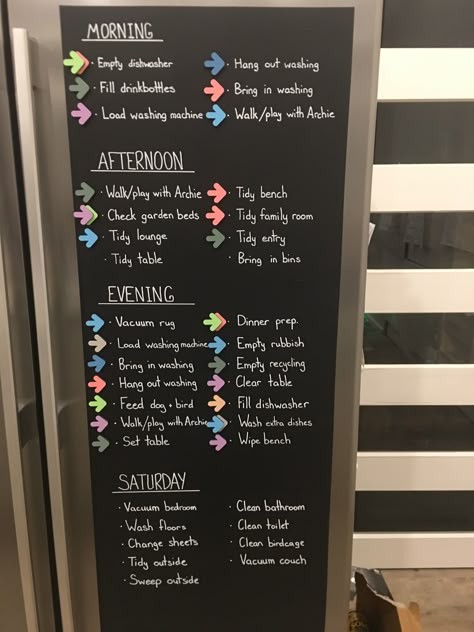 MORNING
· Empty dishwasher
· Fill drinkbottles
· Load washing machine
· Hang out washing
· Bring in washing
· Walk/play with Archie
AFTERNOON
· Walk/play with Archie
· Check garden beds
· Tidy lounge
· Tidy table
· Tidy bench
· Tidy family room
· Tidy entry
· Bring in bins
EVENING
· Vacuum rug
· Load washing machine
· Bring in washing
· Hang out washing
· Feed dog + bird
· Walk/play with Archie
· Set table
· Dinner prep.
· Empty rubbish
· Empty recycling
· Clear table
· Fill dishwasher
· Wash extra dishes
· Wipe bench
SATURDAY
· Vacuum bedroom
· Wash floors
· Change sheets
· Tidy outside
· Sweep outside
· Clean bathroom
· Clean toilet
· Clean birdcage
· Vacuum couch